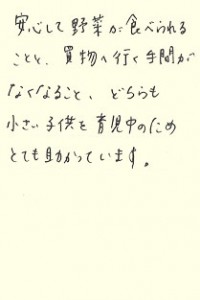 安心して野菜が食べられる
ことと、買物へ行く手間が
なくなること、どちらも
小さい子供を育児中のため
とても助かっています。